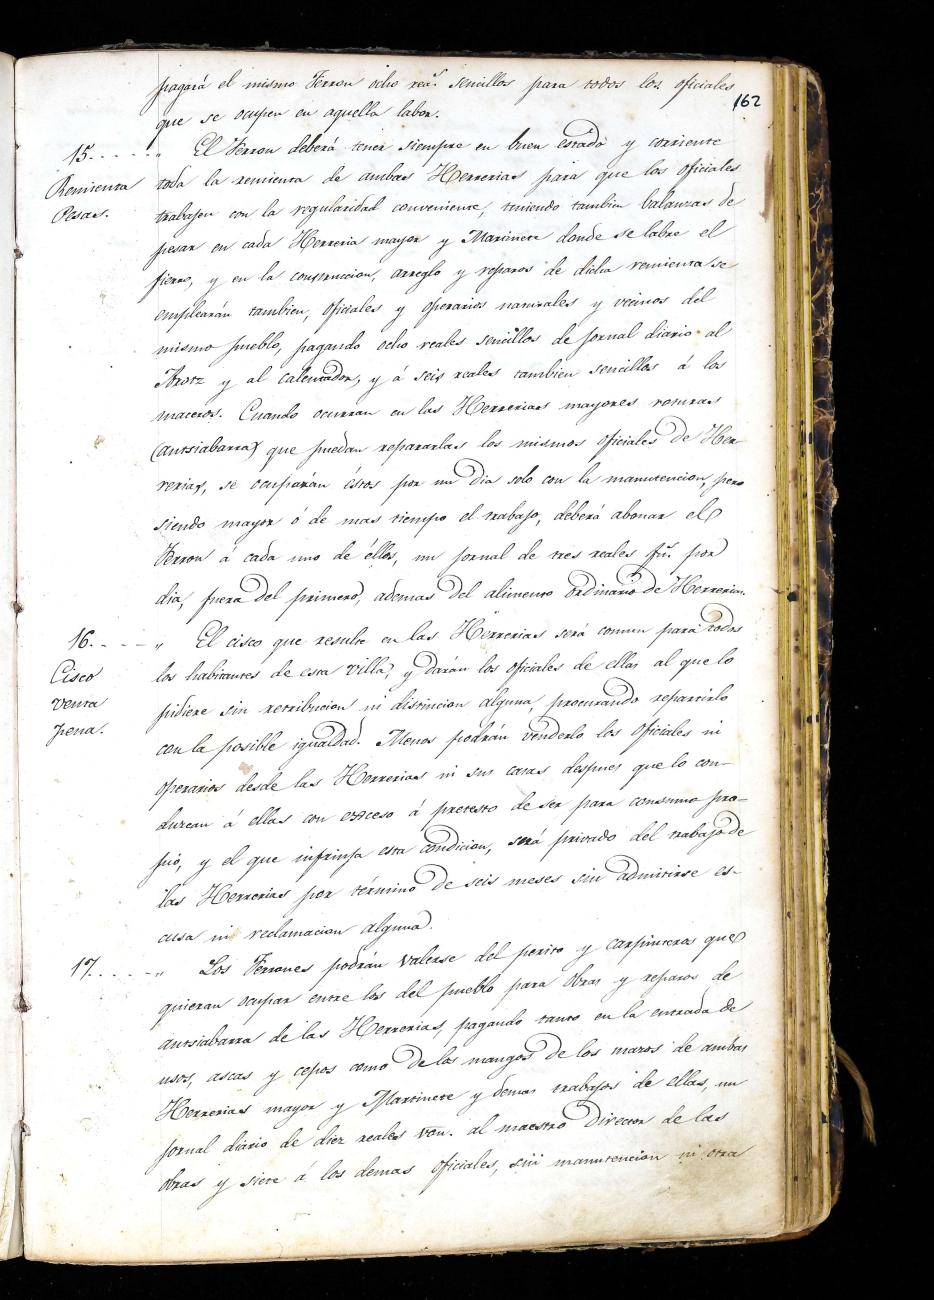 pagará el mismo Ferron ocho rea.s sencillos para todos los oficiales
162
que se ocupen en aquella labor.
15. - - - - „ El Ferron deberá tener siempre en buen estado y corriente
Remienta toda la remienta de ambas Herrerias para que los oficiales
Pesas. trabajen con la regularidad conveniente, teniendo tambien balanzas de
pesar en cada Herreria mayor y Martinete donde se labre el
fierro, y en la construccion, arreglo y reparos de dicha remienta se
emplearán tambien, oficiales y operarios naturales y vecinos del
mismo pueblo, pagando ocho reales sencillos de jornal diario al
Arotz y al calentador, y á seis reales tambien sencillos á los
maceros. Cuando ocurran en las Herrerias mayores roturas
(antsiabarra) que puedan repararlas los mismos oficiales de Her-
rerias, se ocuparán éstos por un dia solo con la manutencion, pero
siendo mayor ó de mas tiempo el trabajo, deberá abonar el
Ferron á cada uno de éllos, un jornal de tres reales fu.s por
dia, fuera del primero, ademas del alimento ordinario de Herreria.
16. - - - „ El cisco que resulte en las Herrerias será comun para todos
Cisco los habitantes de esta Villa, y darán los oficiales de ellas al que lo
venta pidiere sin retribucion ni distincion alguna, procurando repartirlo
pena. con la posible igualdad. Menos podrán venderlo los oficiales ni
operarios desde las Herrerias ni sus casas despues que lo con-
duzcan á ellas con exceso á pretesto de ser para consumo pro-
pio, y el que infrinja esta condicion, será privado del trabajo de
las Herrerias por término de seis meses sin admitirse es-
cusa ni reclamacion alguna.
17. - - - - „ Los Ferrones podrán valerse del perito y carpinteros que
quieran ocupar entre los del pueblo para obras y reparos de
antsiabarra de las Herrerias, pagando tanto en la entrada de
usos, ascas y cepos como de los mangos de los mazos de ambas
Herrerias mayor y Martinete y demas trabajos de ellas, un
jornal diario de diez reales von. al maestro Director de las
obras y siete á los demas oficiales, sin manutencion ni otra